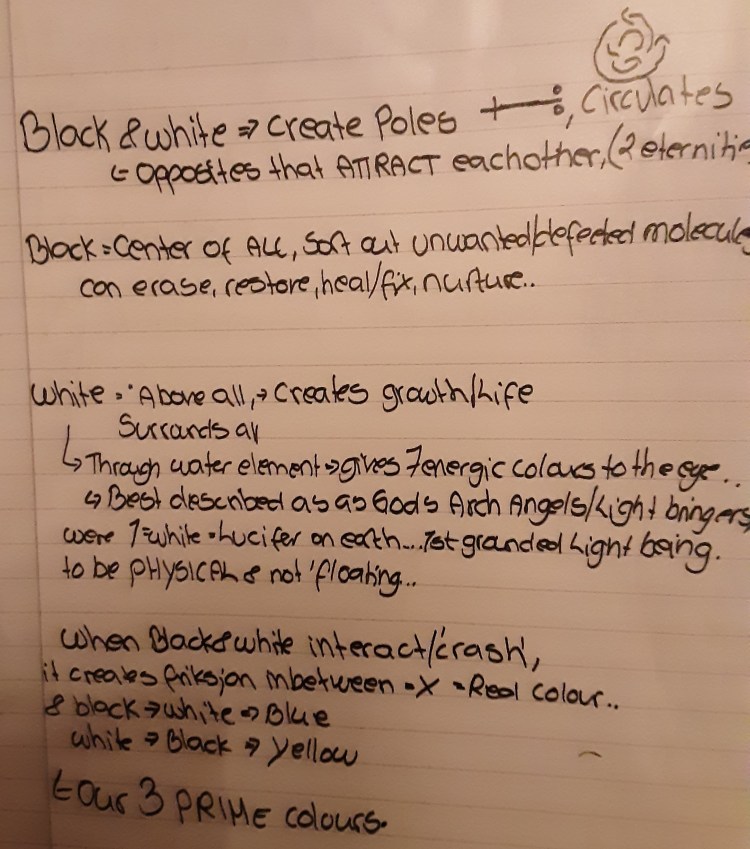 Black & white ⇒ Create Poles +—:, Circulates
↳ opposites that ATTRACT eachother, (2 eterniti
Black = Center of ALL, Sort out unwanted/defected molecule
can erase, restore, heal/fix, nurture..
White = 'Above all, → Creates growth/Life
Surrounds all
↳ Through water element ⇒ gives 7 energic colours to the eye...
↳ Best described as as Gods Arch Angels/Light bringers
were 1=white = Lucifer on eath... 1st granded Light being.
to be PHYSICAL & not 'floating...
When Black & white interact/'crash',
it creates friksjon inbetween = X = Real Colour..
& black ⇒ white ⇒ Blue
white ⇒ Black ⇒ Yellow
↳ Our 3 PRIME colours.